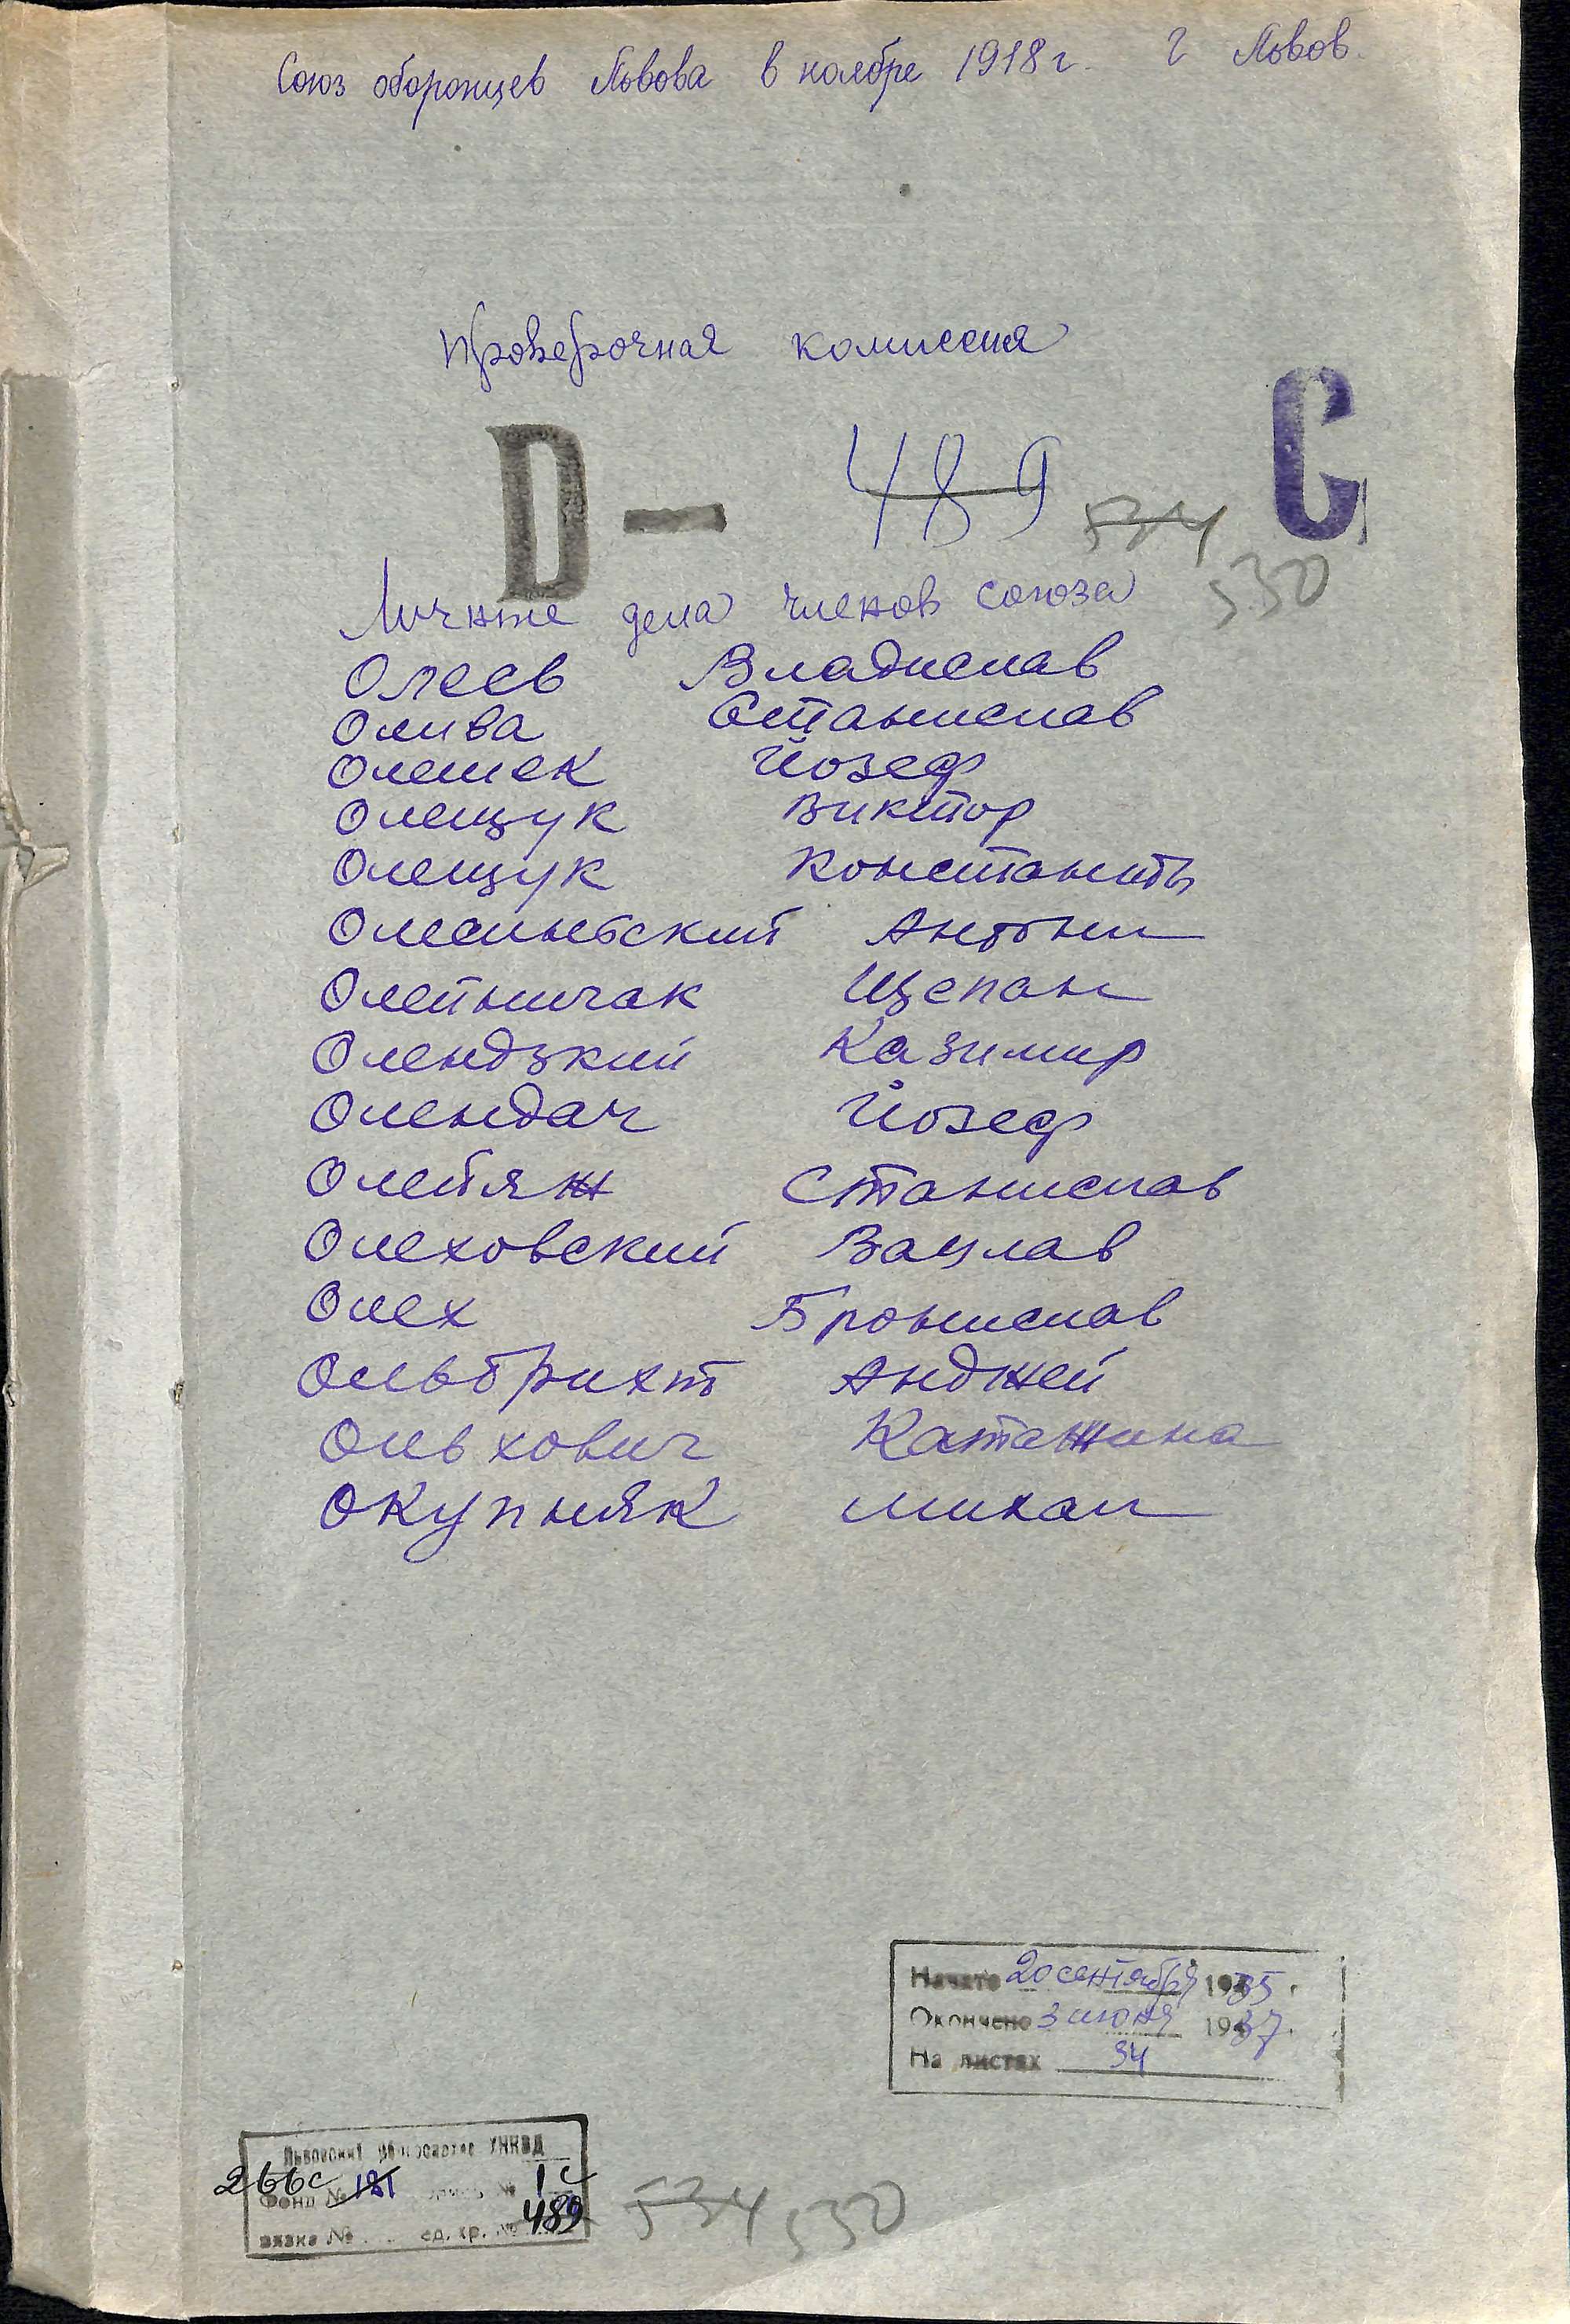 Союз оборонцев Львова в ноябре 1918 г. г Львов.
Проверочная комиссия
D — 489 C
534
530
Личные дела членов союза
Олеев Владислав
Олива Станислав
Олешек Йозеф
Олещук Виктор
Олещук Константы
Олесиньский Антони
Олейничак Щепан
Олендзкий Казимир
Олендач Йозеф
Олейяж Станислав
Олеховский Вацлав
Олех Бронислав
Ольбрихт Анджей
Ольхович Катажина
Окупняк Михал
Начато 20 сентября 1935 г.
Окончено 3 июня 1937 г.
На листах 34
Львовский УНКВД
266с Фонд № 121 опись № 1с
вязка № ед. хр. № 489
534 530